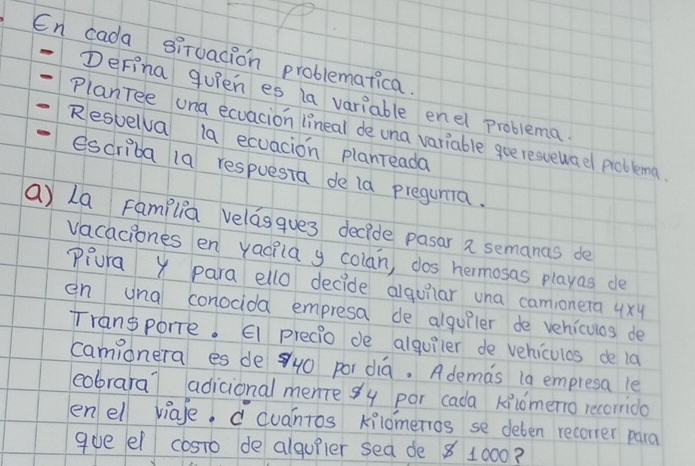 En cada situación problematica.
- Defina quien es la variable en el problema.
- Plantee una ecuación lineal de una variable que resuelva el problema.
- Resuelva la ecuación planteada
- escriba la respuesta de la pregunta.
a) La Familia velásquez decide pasar 2 semanas de
vacaciones en yacila y colán, dos hermosas playas de
Piura y para ello decide alquilar una camioneta 4x4
en una conocida empresa de alquiler de vehículos de
Transporte. El precio de alquiler de vehículos de la
camioneta es de $40 por día. Además la empresa le
cobrará adicional mente $4 por cada kilómetro recorrido
en el viaje. ¿ cuántos kilómetros se deben recorrer para
que el costo de alquiler sea de $ 1000?